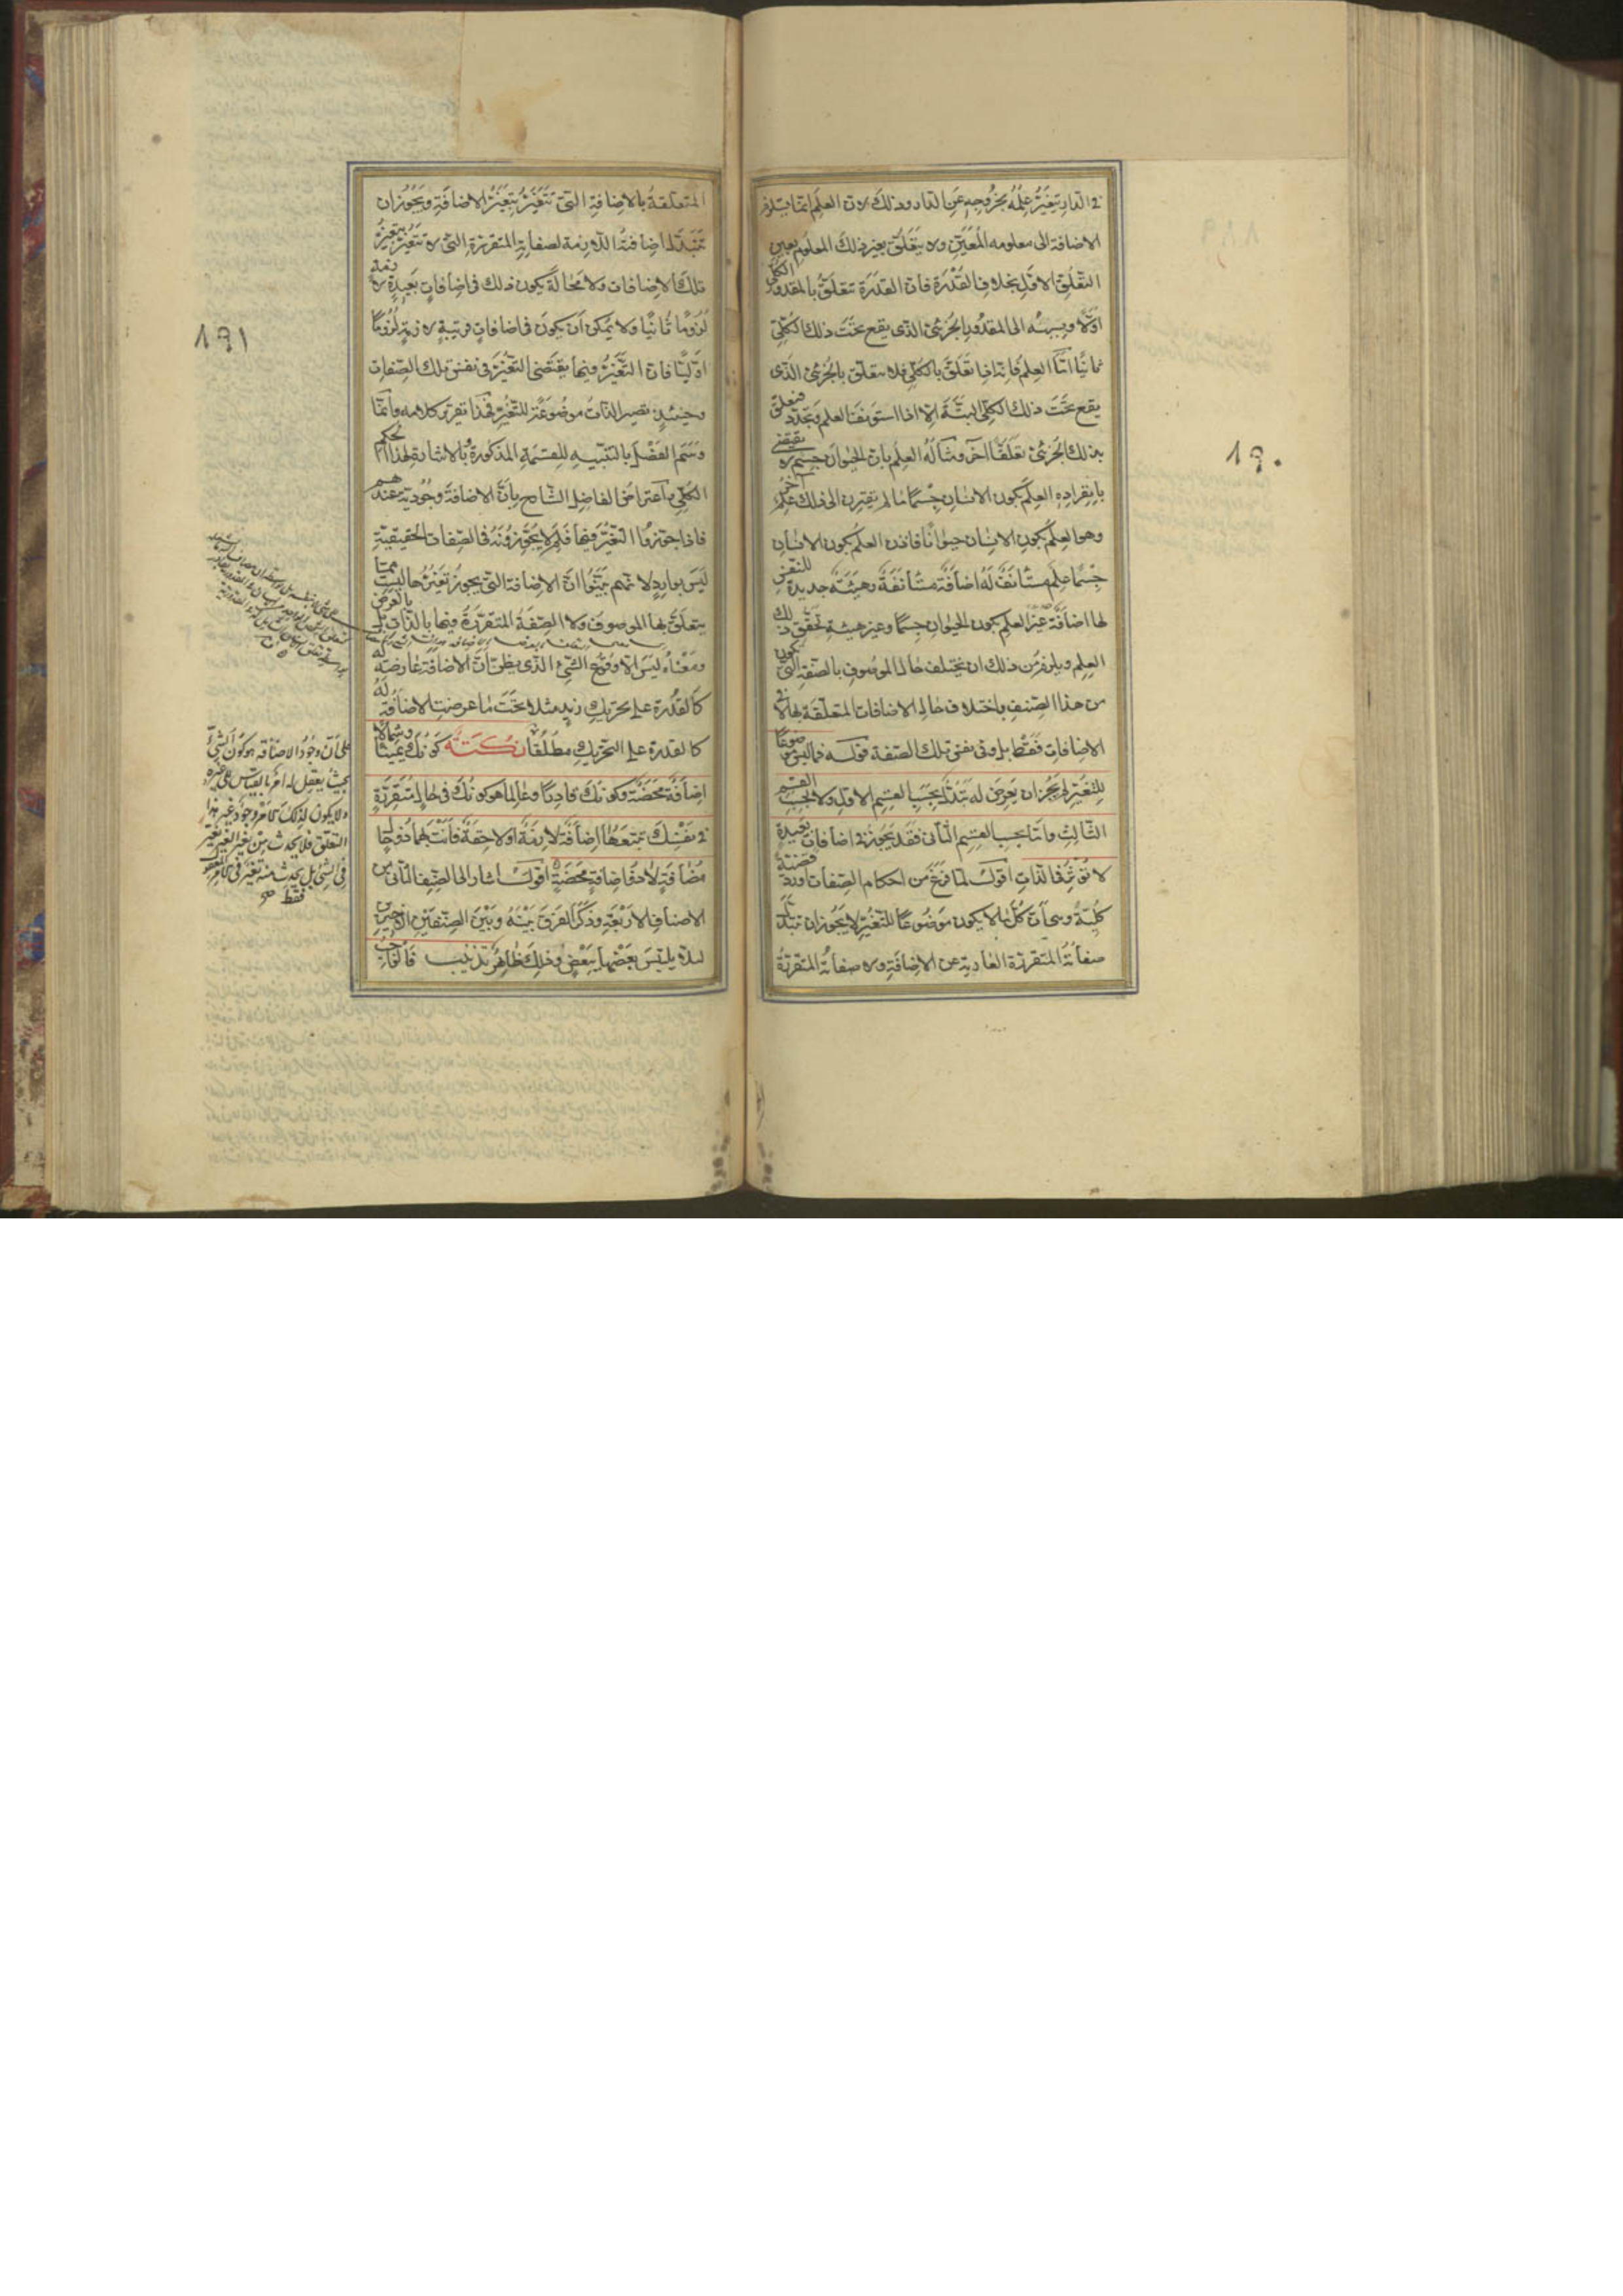 في الدار يتغير علمه بخروجه عن الدار وذلك لان العلم انما يستلزم
الاضافة الى معلومه المعين ولا يتعلق بغير ذلك المعلوم بعين
التعلق الاول بخلاف القدرة فان القدرة تتعلق بالمقدور الكلي
اولا وبسببه الى المقدور الجزئي الذي يقع تحت ذلك الكلي
ثانيا اما العلم فانه اذا تعلق بالكلي فلا يتعلق بالجزئي الذي
يقع تحت ذلك الكلي البتة الا اذا استونف العلم وتجدد فتعلق
بذلك الجزئي تعلقا آخر ومثاله العلم بان الحيوان جسم لا يقتضي
بانفراده العلم بكون الانسان جسما ما لم يقترن الى ذلك علم آخر
وهو العلم بكون الانسان حيوانا فاذن العلم بكون الانسان
جسما علم مستانف له اضافة مستانفة وهيئة جديدة للنفس
لها اضافة غير العلم بكون الحيوان جسما وغير هيئة تحقق ذلك
العلم ويلزم من ذلك ان يختلف حال الموصوف بالصفة التي تكون
من هذا الصنف باختلاف حال الاضافات المتعلقة بها لا في
الاضافات فقط بل وفي نفس تلك الصفة قوله فما ليس موضوعا
للتغير لم يجز ان يعرض له تبدل بحسب القسم الاول ولا بحسب القسم
الثالث واما بحسب القسم الثاني فقد يجوز في اضافات بعيدة
لا تؤثر في الذات اقول لما فرغ من احكام الصفات اورد قضية
كلية وهي ان كل ما لا يكون موضوعا للتغير لا يجوز ان تتبدل
صفاته المتقررة العارية عن الاضافة ولا صفاته المتقررة
١٩٠
المتعلقة بالاضافة التي تتغير بتغير الاضافة ويجوز ان
تتبدل اضافته اللازمة لصفاته المتقررة التي لا تتغير بتغير
تلك الاضافات ولا محالة يكون ذلك في اضافات بعيدة لازمة
لزوما ثانيا ولا يمكن ان يكون في اضافات قريبة لازمة لزوما
اوليا فان التغير فيها يقتضي التغير في نفس تلك الصفات
وحينئذ تصير الذات موضوعة للتغير فهذا تقرير كلامه وانما
وسم الفصل بالتنبيه للقسمة المذكورة وبالاشارة لهذا الحكم
الكلي واعتراض الفاضل الشارح بان الاضافة وجودية عندهم
فاذا جوزوا التغير فيها فلم لا يجوزونه في الصفات الحقيقية
ليس بوارد لانهم بينوا ان الاضافة التي يجوز تغيرها ليست مما
يتعلق بها الموصوف ولا الصفة المتقررة فيها بالذات بل بالعرض
ومعناه ليس الا وقوع الشيء الذي يظن ان الاضافة عارضة له
كالقدرة على تحريك زيد مثلا تحت ما عرضت الاضافة له
كالقدرة على التحريك مطلقا نكتة كونك يمينا وشمالا
اضافة محضة وكونك قادرا وعالما هو كونك في حال متقررة
في نفسك تتبعها اضافة لازمة او لاحقة فانت بهما ذو حال
مضافة لا ذو اضافة محضة اقول اشار الى الصنف الثاني من
الاصناف الاربعة وذكر الفرق بينه وبين الصنفين الاخيرين
لئلا يلتبس بعضها ببعض وذلك ظاهر تذنيب فالواجب
١٩١
على ان وجود الاضافة هو كون الشيء
بحيث يعقل له امر بالقياس الى غيره
ولا يكون لذلك الامر وجود غير هذا
التعلق فلا يحدث من تغير الغير تغير
في الشيء بل يحدث منه تغير في الامر
فقط